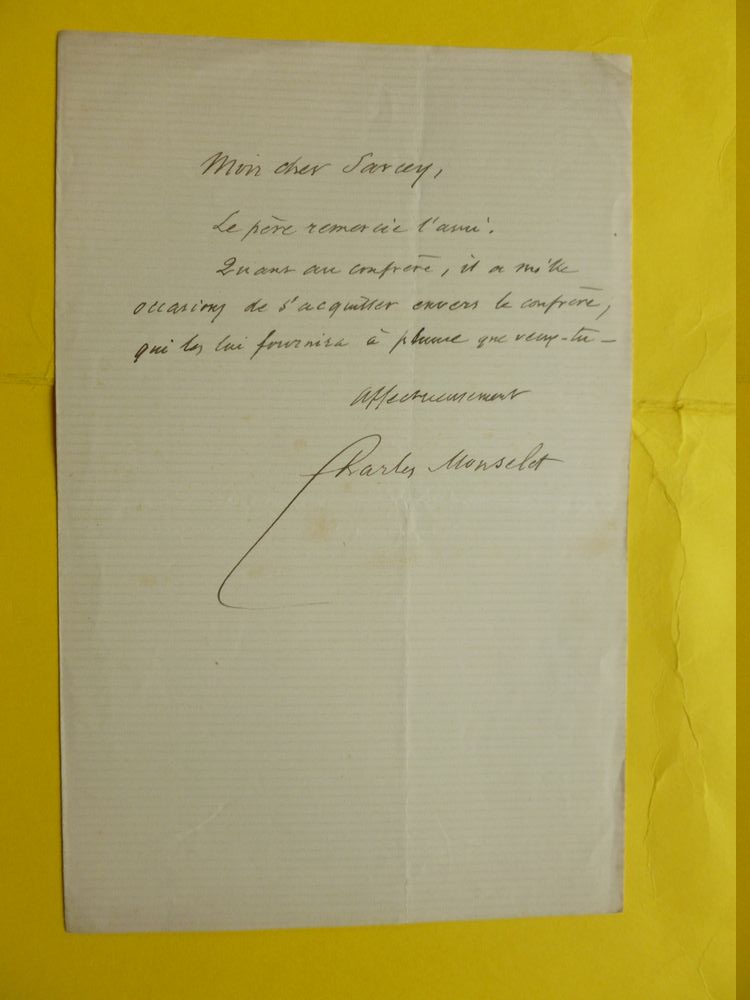 Mon cher Sarcey,
Le père remercie l'ami.
Quant au confrère, il a mille
occasions de s'acquitter envers le confrère,
qui les lui fournira à plume que veux-tu –
Affectueusement
Charles Monselet